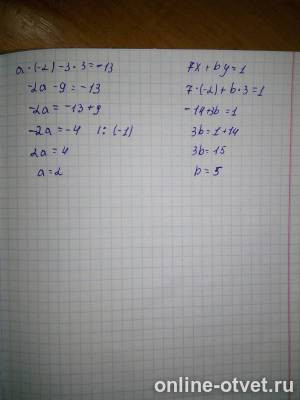 a·(-2)-3·3=-13
-2a-9=-13
-2a=-13+9
-2a=-4 |:(-1)
2a=4
a=2
7x+by=1
7·(-2)+b·3=1
-14+3b=1
3b=1+14
3b=15
b=5
online-otvet.ru